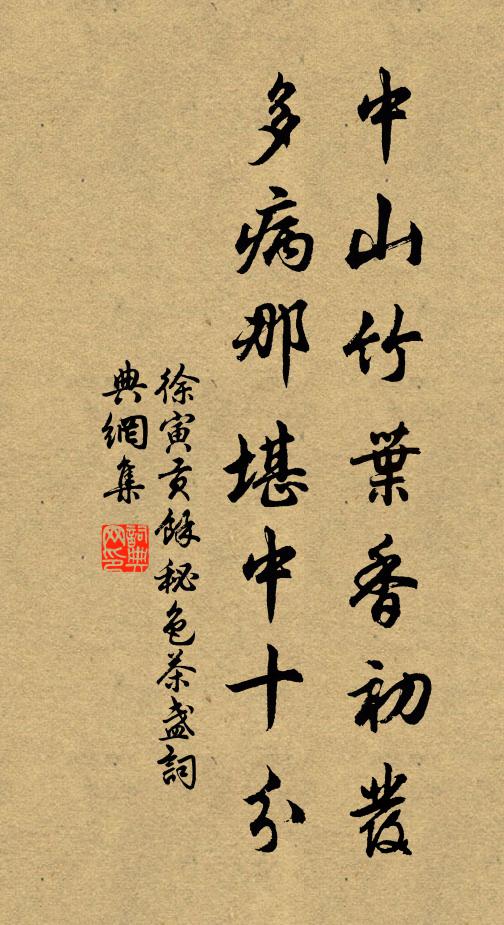 中山竹葉香初發
多病那堪中十分
徐寅貢餘秘色茶盞詞
典網集
詞典
网印